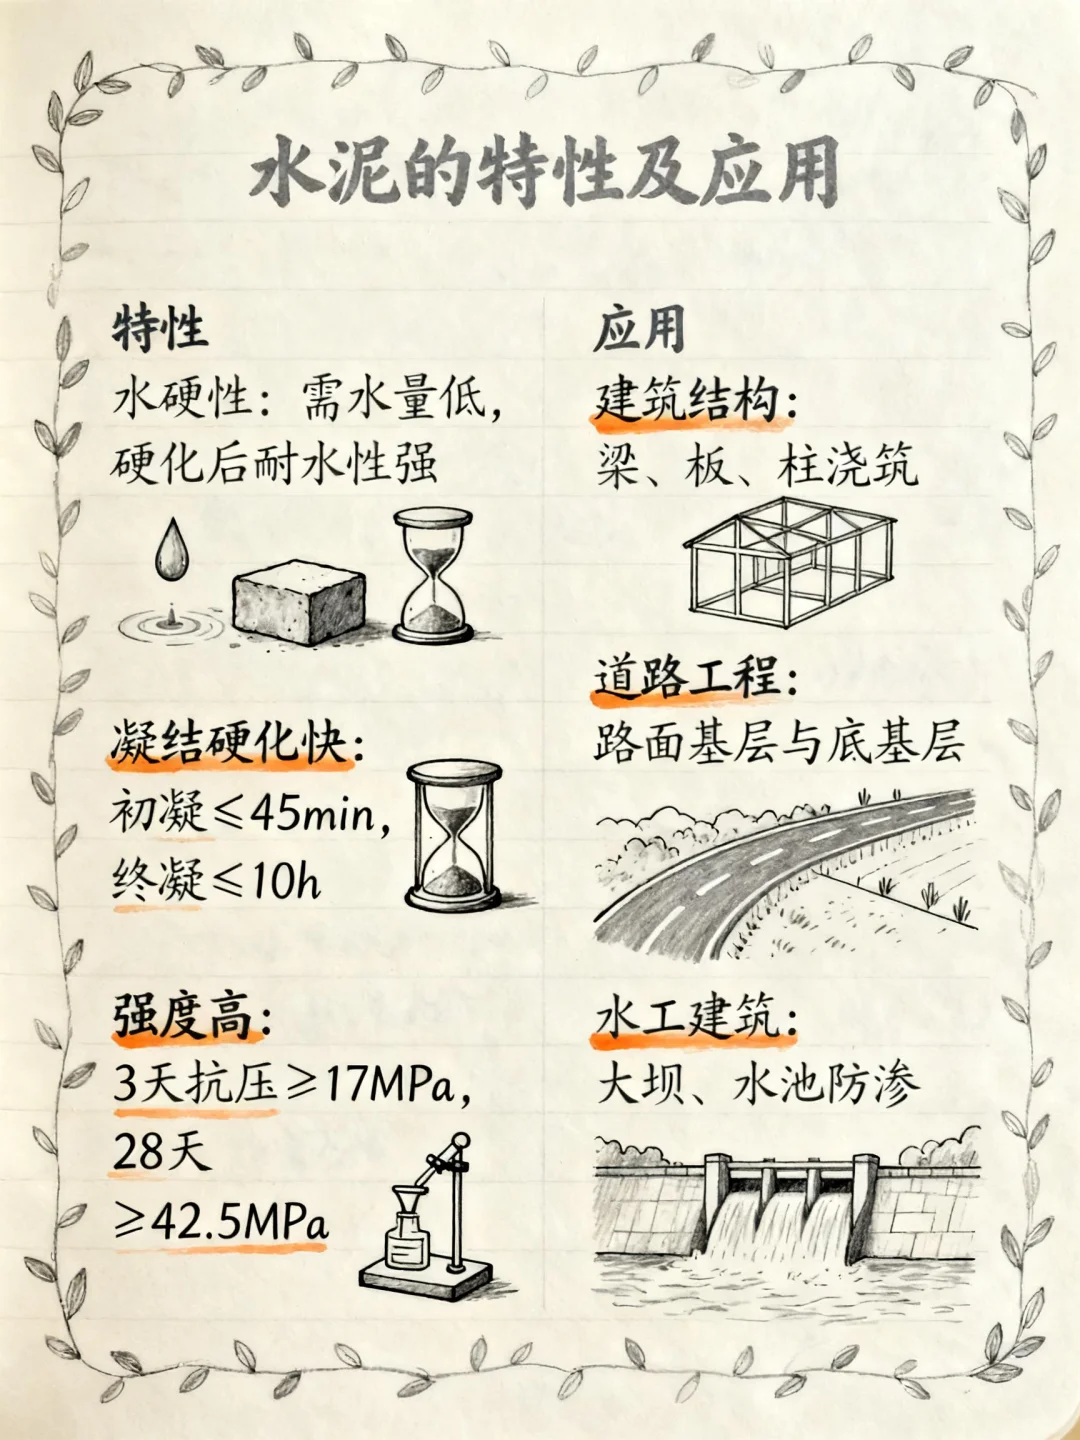 水泥的特性及应用
特性
水硬性：需水量低，
硬化后耐水性强
凝结硬化快：
初凝≤45min，
终凝≤10h
强度高：
3天抗压≥17MPa，
28天
≥42.5MPa
应用
建筑结构：
梁、板、柱浇筑
道路工程：
路面基层与底基层
水工建筑：
大坝、水池防渗